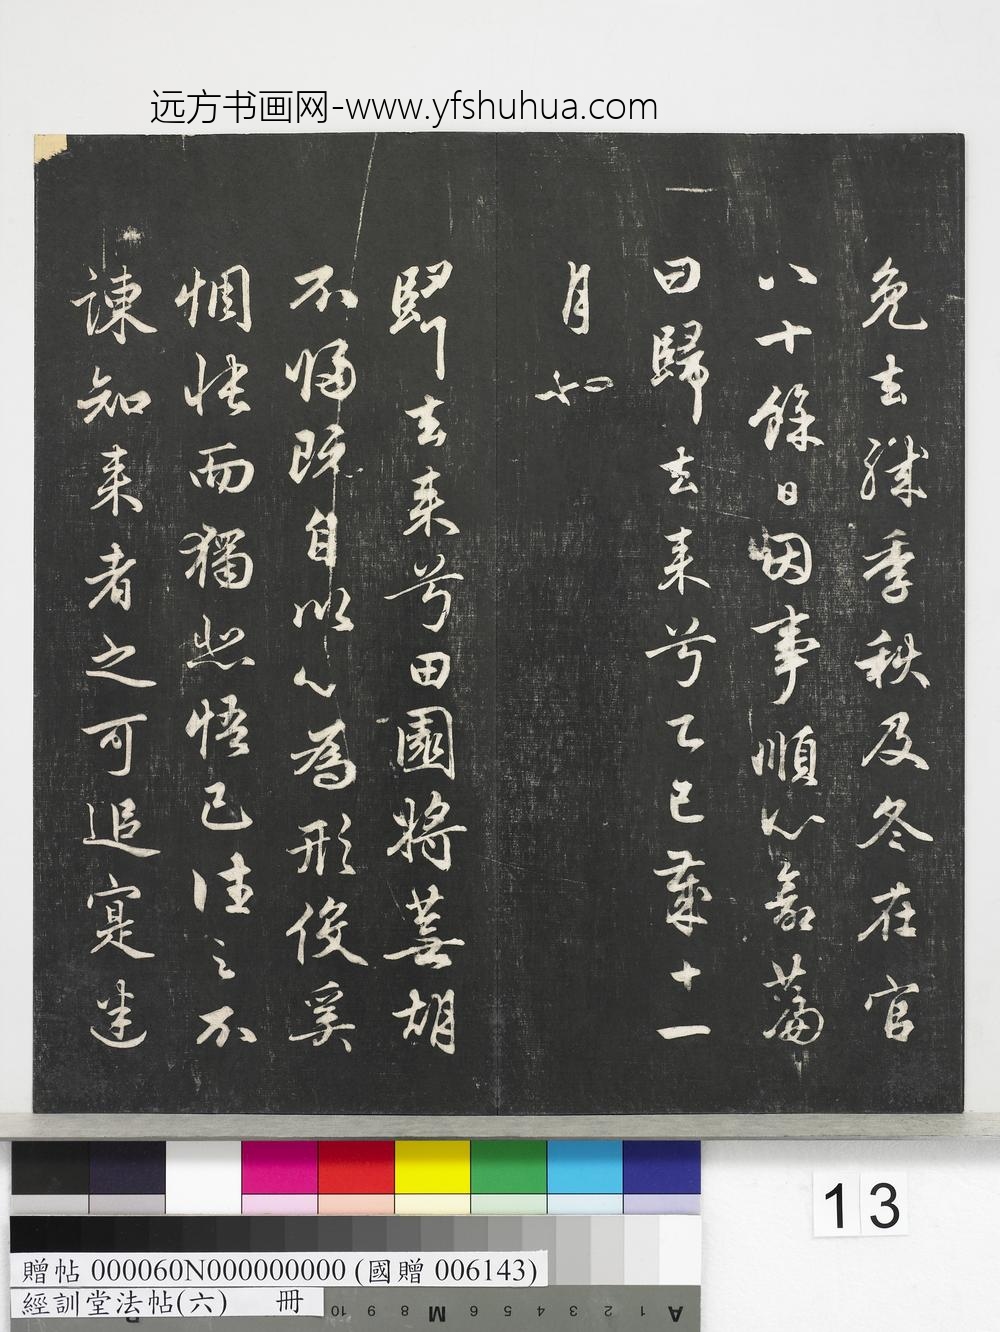 远方书画网-www.yfshuhua.com
免去職季秋及冬在官
八十餘日因事順心命篇
曰歸去来兮乙巳歲十一
月也
歸去来兮田園將蕪胡
不歸既自以心為形役奚
惆悵而獨悲悟已往之不
諫知来者之可追寔迷
13
贈帖 000060N000000000 (國贈 006143)
經訓堂法帖(六) 冊
10 9 8 M 6 5 4 3 2 1 A